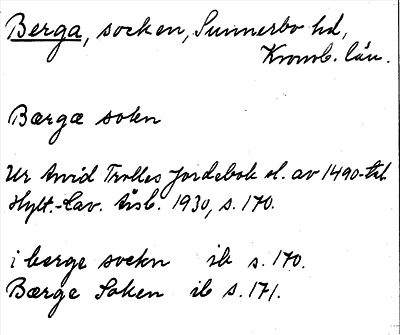 Berga, socken, Sunnerbo hd,
Kronob. län.
Bærgæ sokn
Ur Arvid Trolles Jordebok sl. av 1490-tal.
Hylt.-Cav. Årsb. 1930, s. 170.
i berge sockn ib s. 170.
Bærge Soken ib s. 171.